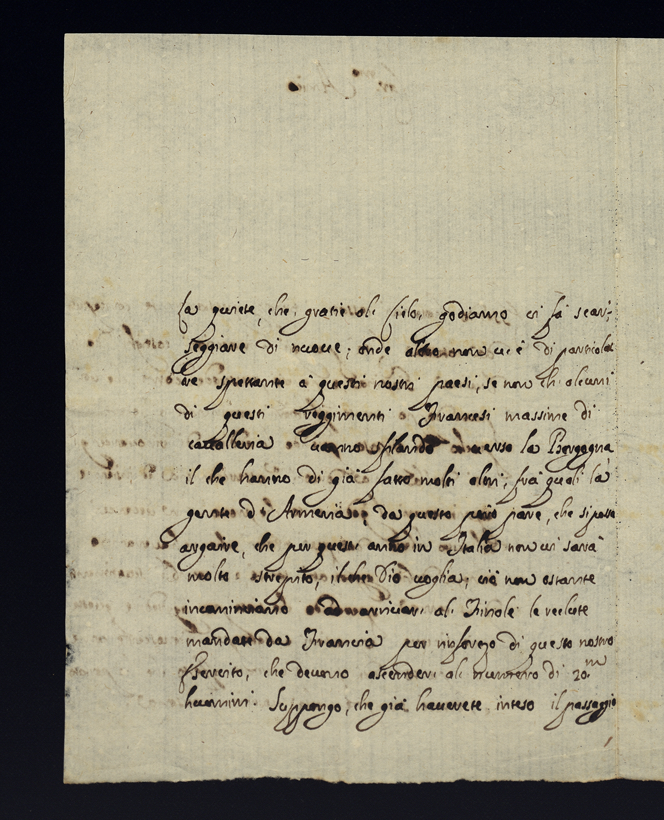 La quiete, che gratie al Cielo godiamo ci fà scar-
seggiare di nuove; onde altro non vi è di particola
re spettante à questi nostri paesi, se non ch alcuni
di questi reggimenti Francesi massime di
cavalleria vanno sfilando verso la Borgogna
il che hanno di già fatto molti altri, frà quali la
gente d'Armeria; da questo però pare, che si possa
arguire, che per quest' anno in Italia non vi sarà
molto strepito, il che Dio voglia; ciò non ostante
incominciano ad arrivar' al Finale le reclute
mandate da Francia per rinforzo di questo nostro
Esercito, che devono ascender' al numero di 20m
huomini. Suppongo, che già haverete inteso il passaggio